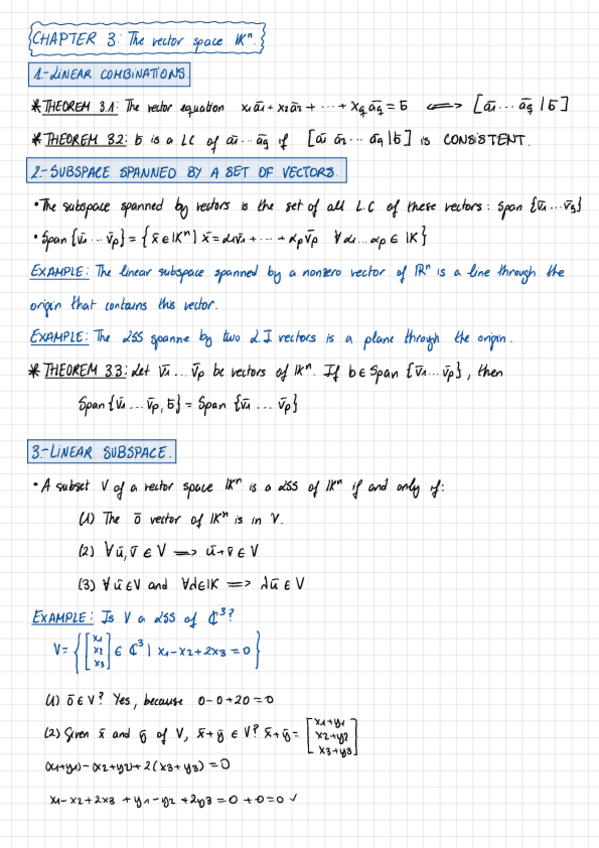 CHAPTER 3: The vector space 𝕂ⁿ.
1-LINEAR COMBINATIONS
* THEOREM 3.1: The vector equation x₁ā₁ + x₂ā₂ + ··· + x_q ā_q = b̄ <=> [ā₁ ··· ā_q | b̄]
* THEOREM 3.2: b̄ is a LC of ā₁ ··· ā_q if [ā₁ ā₂ ··· ā_q | b̄] is CONSISTENT.
2-SUBSPACE SPANNED BY A SET OF VECTORS.
• The subspace spanned by vectors is the set of all L.C of these vectors: Span {v̄₁ ... v̄_q}
• Span {v̄₁ ... v̄p} = {x̄ ∈ 𝕂ⁿ | x̄ = α₁v̄₁ + ··· + αp v̄p ∀ α₁ ... αp ∈ 𝕂}
EXAMPLE: The linear subspace spanned by a nonzero vector of ℝⁿ is a line through the
origin that contains this vector.
EXAMPLE: The LSS spanne by two LI vectors is a plane through the origin.
* THEOREM 3.3: Let v̄₁ ... v̄p be vectors of 𝕂ⁿ. If b ∈ Span {v̄₁ ... v̄p}, then
Span {v̄₁ ... v̄p, b̄} = Span {v̄₁ ... v̄p}
3.-LINEAR SUBSPACE.
• A subset V of a vector space 𝕂ⁿ is a LSS of 𝕂ⁿ if and only if:
(1) The ō vector of 𝕂ⁿ is in V.
(2) ∀ ū, v̄ ∈ V => ū + v̄ ∈ V
(3) ∀ ū ∈ V and ∀ λ ∈ 𝕂 => λū ∈ V
EXAMPLE: Is V a LSS of ℂ³?
V = {[x₁ x₂ x₃] ∈ ℂ³ | x₁ - x₂ + 2x₃ = 0}
(1) ō ∈ V? Yes, because 0-0+20=0
(2) Given x̄ and ȳ of V, x̄ + ȳ ∈ V? x̄ + ȳ = [x₁+y₁ x₂+y₂ x₃+y₃]
(x₁+y₁) - (x₂+y₂) + 2(x₃+y₃) = 0
x₁ - x₂ + 2x₃ + y₁ - y₂ + 2y₃ = 0 + 0 = 0 ✓